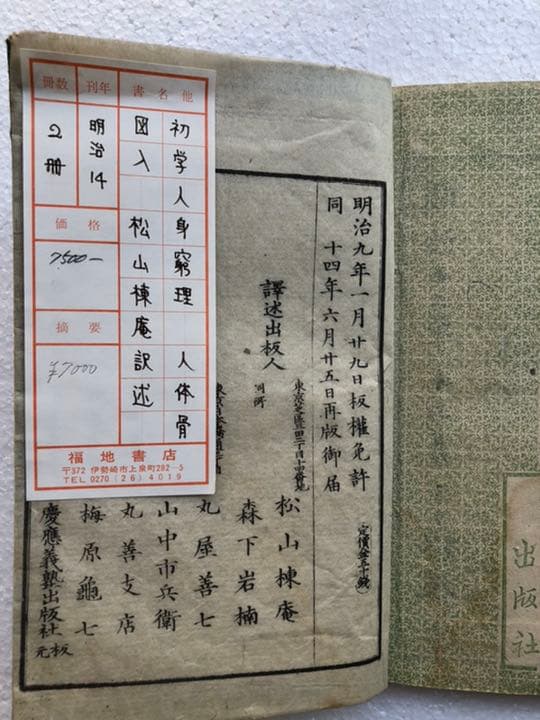 書名他
初学人身窮理 人体骨
図入 松山棟庵訳述
刊年
明治14
冊数
2冊
価格
7500-
摘要
¥7000
福地書店
〒372 伊勢崎市上泉町282-5
TEL 0270(26)4019
明治九年一月廿九日板權免許
同 十四年六月廿五日再版御届
定價
譯述出板人
松山棟庵
同所
森下岩楠
丸屋善七
山中市兵衛
丸善支店
梅原龜七
慶應義塾出版社
元板
出版社